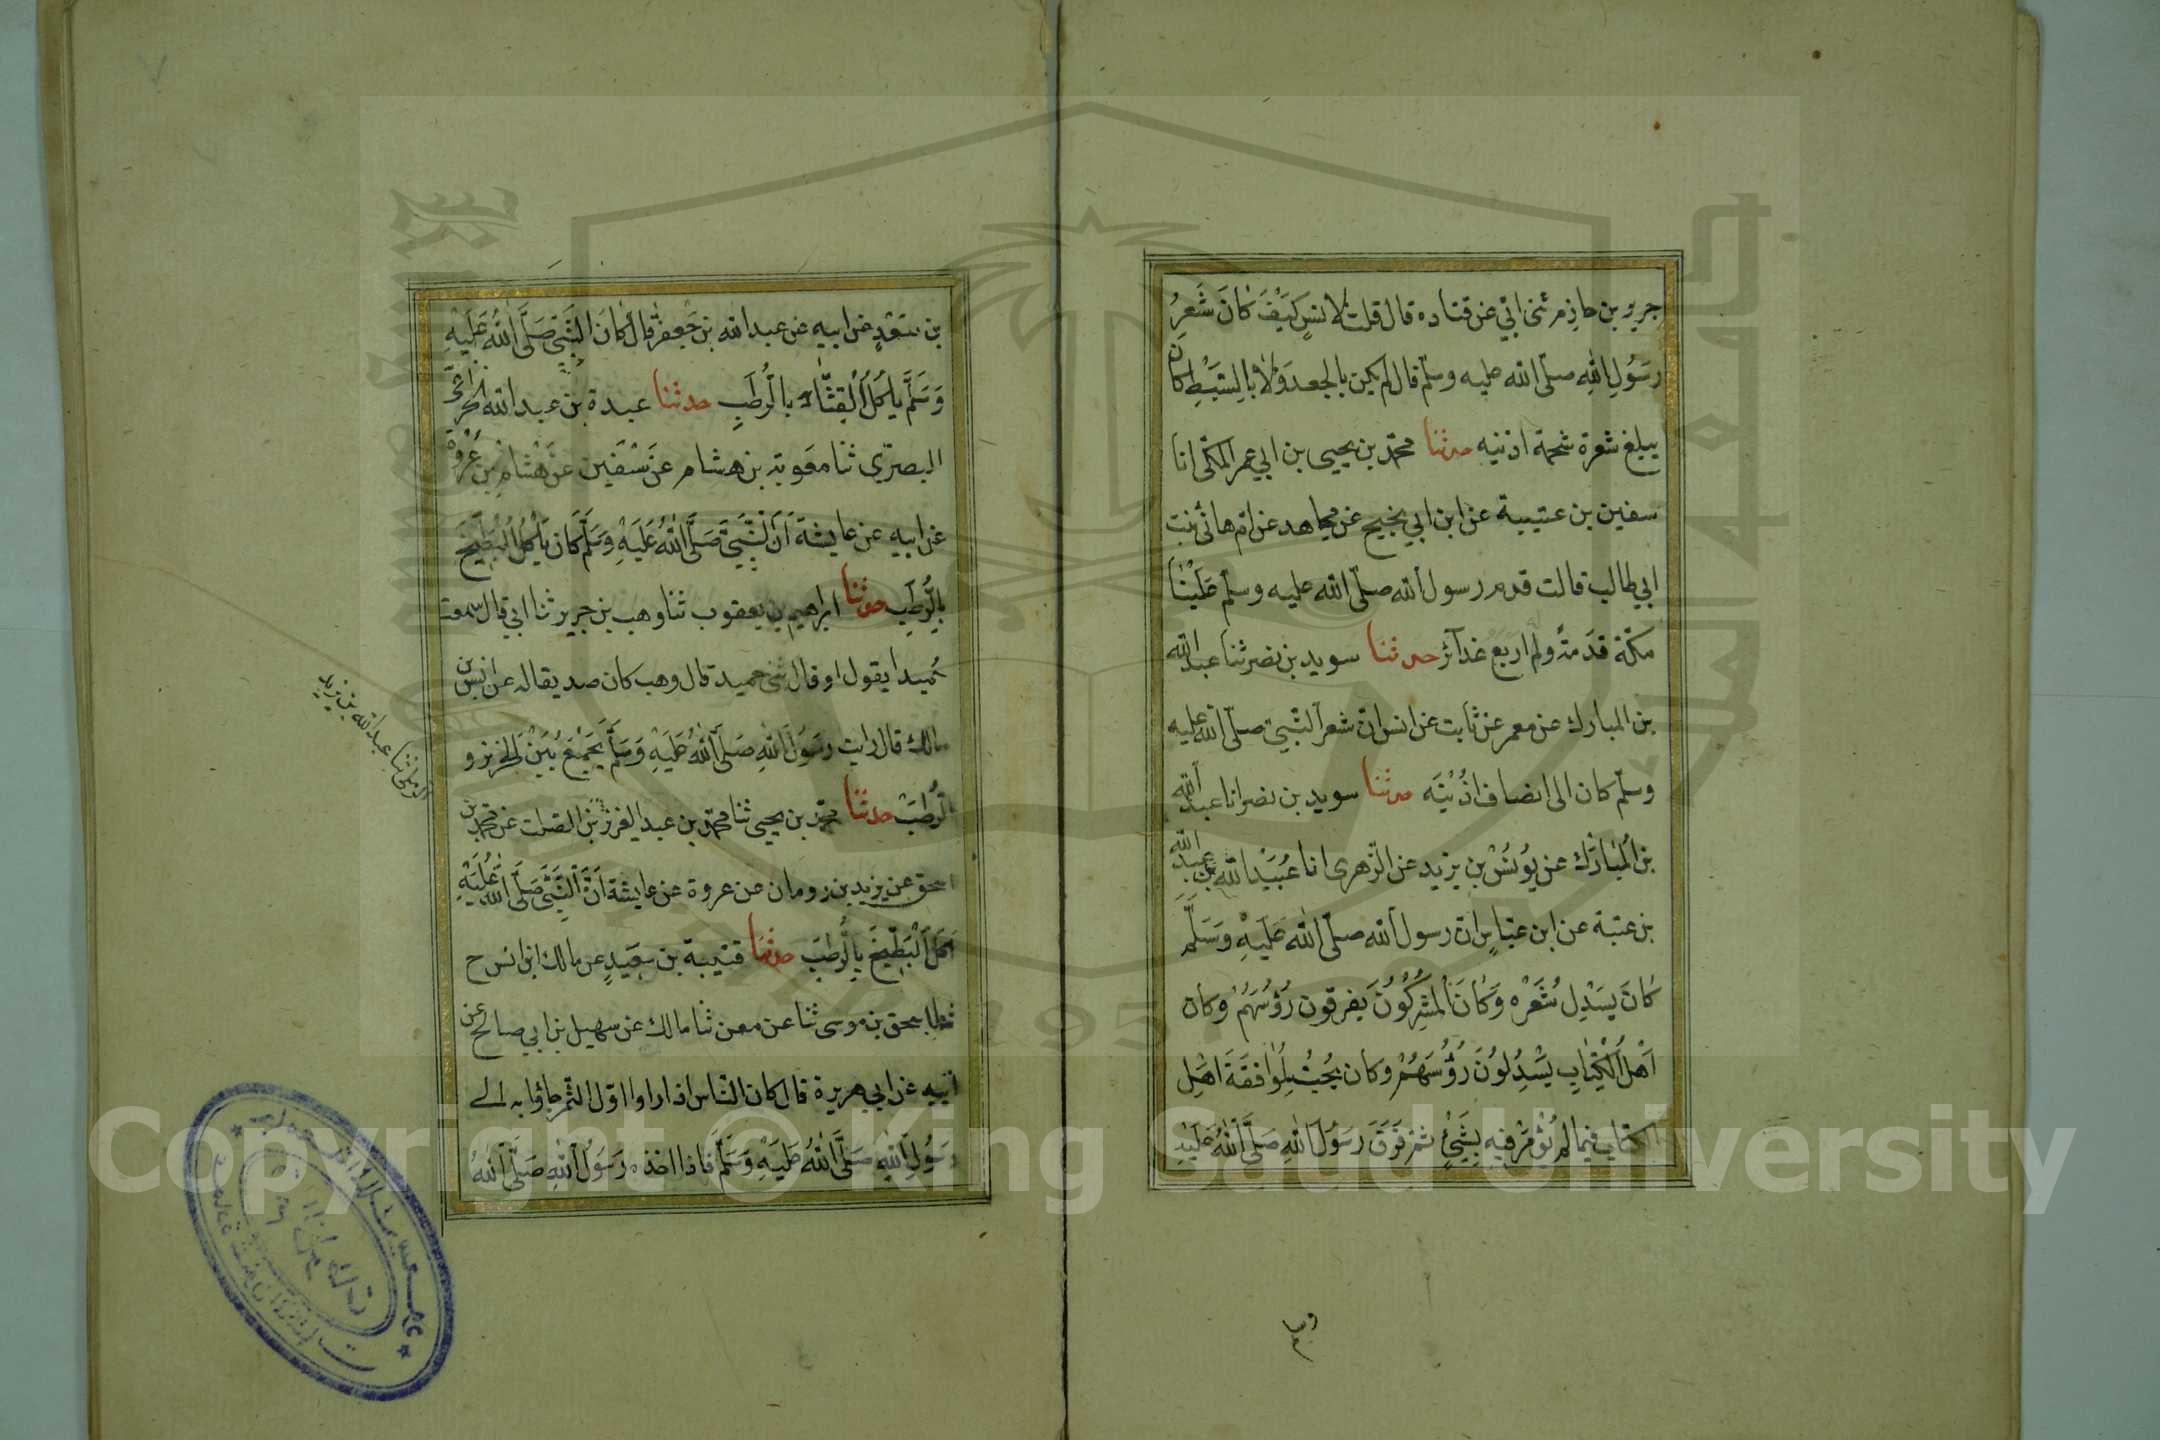 جرير بن حازم ثنى ابي عن قتاده قال قلت لانس كَيْفَ كَانَ شَعرِ
رَسُولِ اللهِ صلّى الله عليه وسلّم قال لم يكن بالجعد وَلَا بِالسَّبْطِ كان
يبلغ شعره شحمة اذنيه حدثنا محمّد بن يحيى بن ابي عمر المكّى انا
سفين بن عيينة عن ابن ابي نجيح عن مجاهد عن امّ هانئ بنت
ابي طالب قالت قدم رسول الله صلّى الله عليه وسلّم عَلَيْنَا
مكّة قَدَمةً وله اربع غدآئر حدثنا سويد بن نصر ثنا عبد الله
بن المبارك عن معمر عن ثابت عن انس انّ شعر النّبيّ صلّى الله عليه
وسلّم كان الى انصاف اذُنَيه حدثنا سويد بن نصر انا عبد الله
بن المُبَارَك عن يُونُسْ بن يزيد عن الزّهرى انا عُبَيْد الله بن عبد الله
بن عتبة عن ابن عبّاسٍ انّ رسول الله صلّى الله عَلَيْهِ وَسَلَّمَ
كَانَ يَسْدِل شَعْرَه وَكَانَ المُشْرِكُونَ يَفرقون رُؤُسَهُمْ وكان
اَهْلُ الْكِتَابِ يَسْدِلُونَ رُؤُسَهُمْ وكان يُحِبُّ مُوَافَقَةَ اَهْلِ
الكتاب فيما لم يُؤمَرْ فيهِ بِشَيْءٍ ثم فَرَقَ رَسُولُ اللهِ صَلَّى اللهُ عَلَيْهِ
وسلم
بن سَعْدٍ عن ابيه عن عبد الله بن جَعفر قال كانَ النَّبِيّ صَلَّى اللهُ عَلَيْهِ
وَسَلَّمَ يأكُلُ الْقِثَّاءَ بالرُّطَبِ حدثنا عبدة بن عبد الله الخزاعى
البصرّى ثنا معوية بن هشام عَنْ سُفْين عَنْ هشام بن عُرْوَةَ
عن ابيه عن عايشة اَنَّ النَّبِيَّ صَلَّى اللهُ عَلَيْهِ وَسَلَّمَ كان يأْكُلُ البِطِّيخَ
بالرُّطَبِ حدثنا ابراهيم بن يعقوب ثنا وهب بن جرير ثنا ابي قال سمعت
حُميدا يقول او قال ثنى حميد قال وهب كان صديقا له عن انس بن
مالك قال رايت رَسُولَ اللهِ صَلَّى اللهُ عَلَيْهِ وَسَلَّمَ يَجْمَعُ بَيْنَ الخِرْبِزِ و
الرُّطَبْ حدثنا محمّد بن يحيى ثنا محمّد بن عبد العزيز بن الصلت عن محمّد بن
اسحق عن يزيد بن رومان عن عروة عن عايشة اَنَّ النَّبِيَّ صَلَّى اللهُ عَلَيْهِ
اَكَلَ البِطّيخَ بالرُّطَبِ حدثنا قتيبة بن سَعِيدٍ عن مالك ابن انس ح
ثنا اسحق بن موسى ثنا عن معن ثنا مالك عن سهيل بن ابي صالح عن
ابيه عن ابي هريرة قال كان النّاس اذا راوا اوّل الثّمر جاؤا به الى
رَسُولِ اللهِ صَلَّى اللهُ عَلَيْهِ وَسَلَّمَ فاذا اخذه رَسُولُ اللهِ صَلَّى اللهُ
الرملى ثنا عبد الله بن يزيد
Copyright © King Saud University
1957